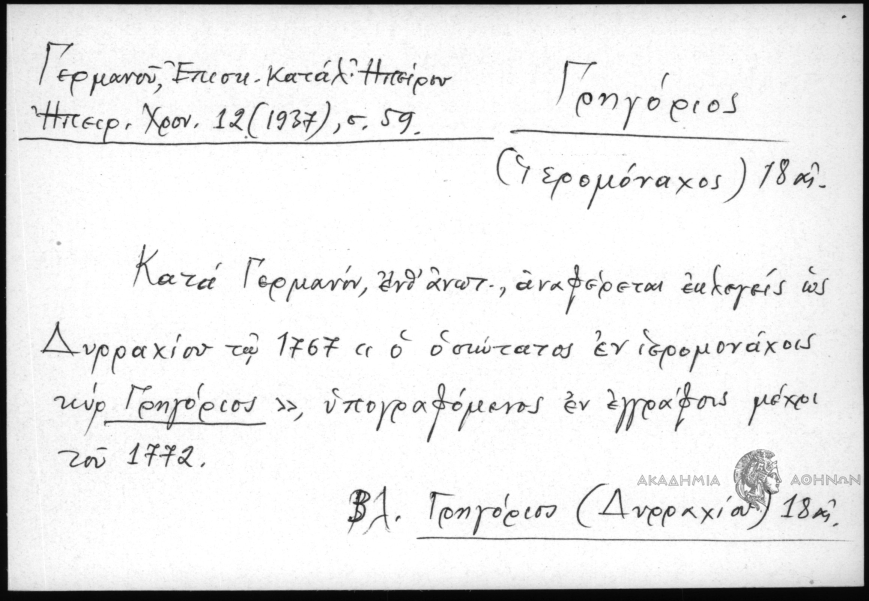 Γερμανοῦ, Ἐπισκ. Κατάλ. Ἠπείρου
Ἠπειρ. Χρον. 12 (1937), σ. 59.
Γρηγόριος
(ἱερομόναχος) 18 αἰ.
Κατά Γερμανόν, ἔνθ' ἀνωτ., ἀναφέρεται ἐκλεγείς ὡς
Δυρραχίου τῷ 1767 « ὁ ὁσιώτατος ἐν ἱερομονάχοις
κύρ Γρηγόριος », ὑπογραφόμενος ἐν ἐγγράφοις μέχρι
τοῦ 1772.
ΑΚΑΔΗΜΙΑ ΑΘΗΝΩΝ
Βλ. Γρηγόριος (Δυρραχίου) 18 αἰ.